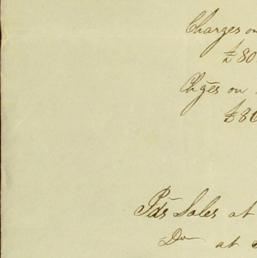 Charges on
£80
Chģes on
£80
Pds Sales at
Do at